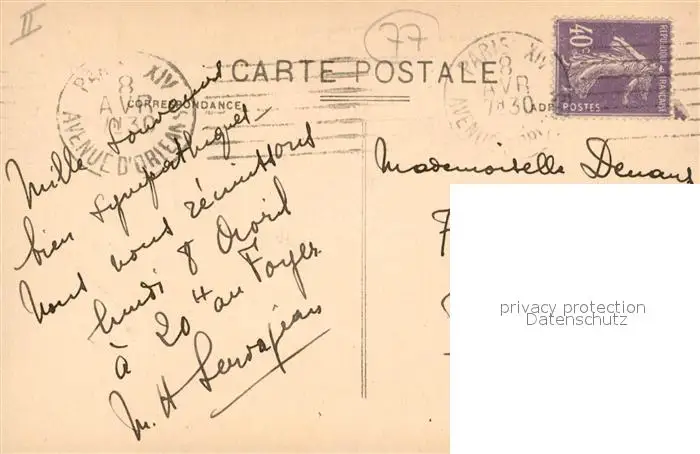 II
77
CARTE POSTALE
CORRESPONDANCE
PARIS XIV
8
AVR
1930
AVENUE D'ORLEANS
PARIS XIV
8
AVR
1930
AVENUE
40c
REPUBLIQUE FRANÇAISE
POSTES
Mille souvenirs
bien sympathiques
Nous nous réunissons
lundi 8 Avril
à 20H au Foyer
M. H Servajean
Mademoiselle Denans
7
privacy protection
Datenschutz